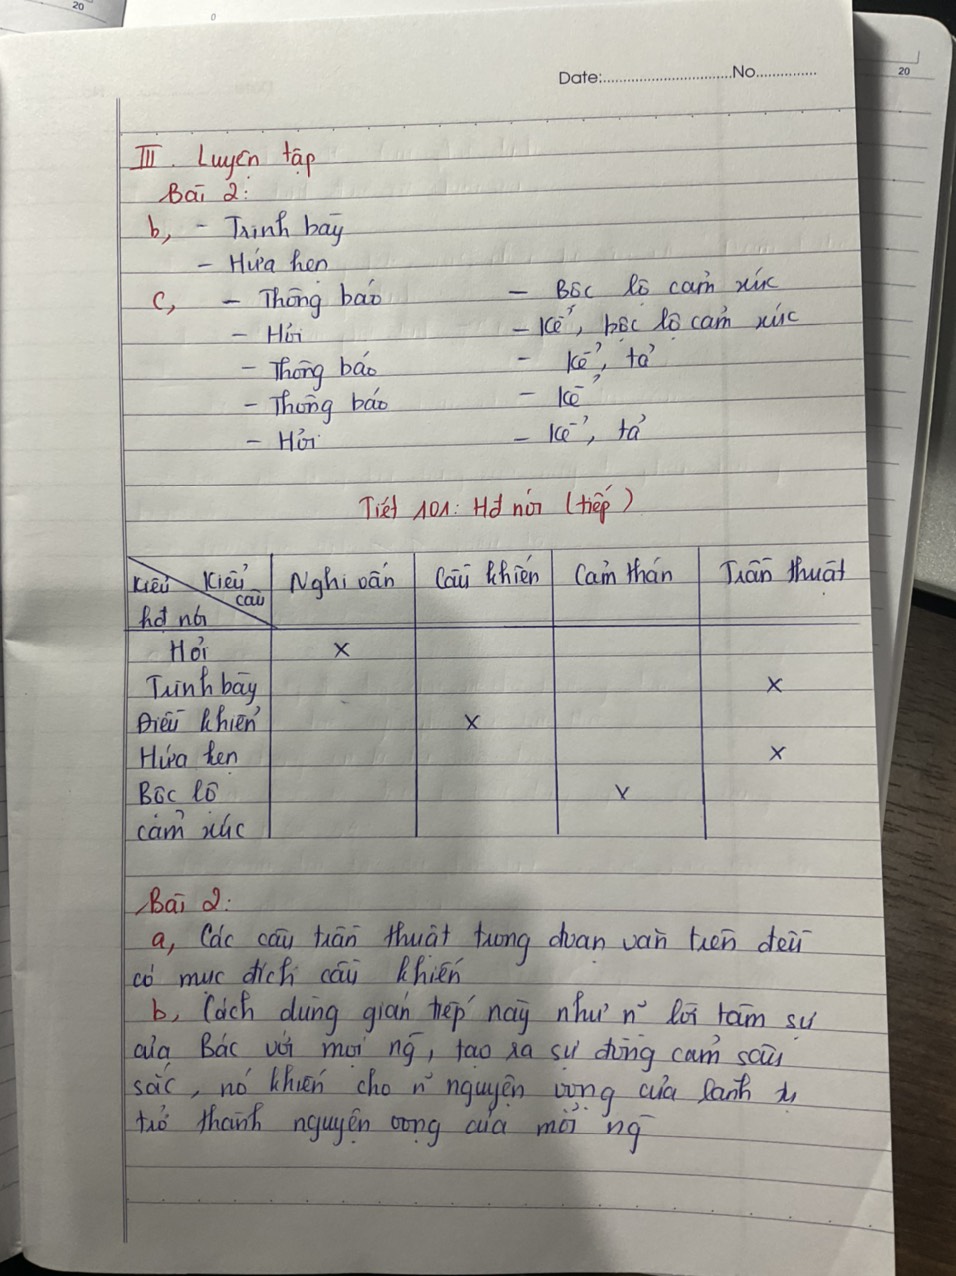 20
0
Date:................................No...............
20
III. Luyện tập
Bài 2:
b, - Trình bày
- Hứa hẹn
c, - Thông báo - Bộc lộ cảm xúc
- Hỏi - Kể, bộc lộ cảm xúc
- Thông báo - Kể, tả
- Thông báo - Kể
- Hỏi - Kể, tả
Tiết 101: Hđ nói (tiếp)
Kiểu câu Nghi vấn Cầu khiến Cảm thán Trần thuật
Kiểu hđ nói
Hỏi x
Trình bày x
Điều khiển x
Hứa hẹn x
Bộc lộ x
cảm xúc
Bài 2:
a, Các câu trần thuật trong đoạn văn trên đều
có mục đích cầu khiến
b, Cách dùng gián tiếp này như n~ lời tâm sự
của Bác với mọi ng, tạo ra sự đồng cảm sâu
sắc, nó khiến cho n~ nguyện vọng của lãnh tụ
trở thành nguyện vọng của mỗi ng